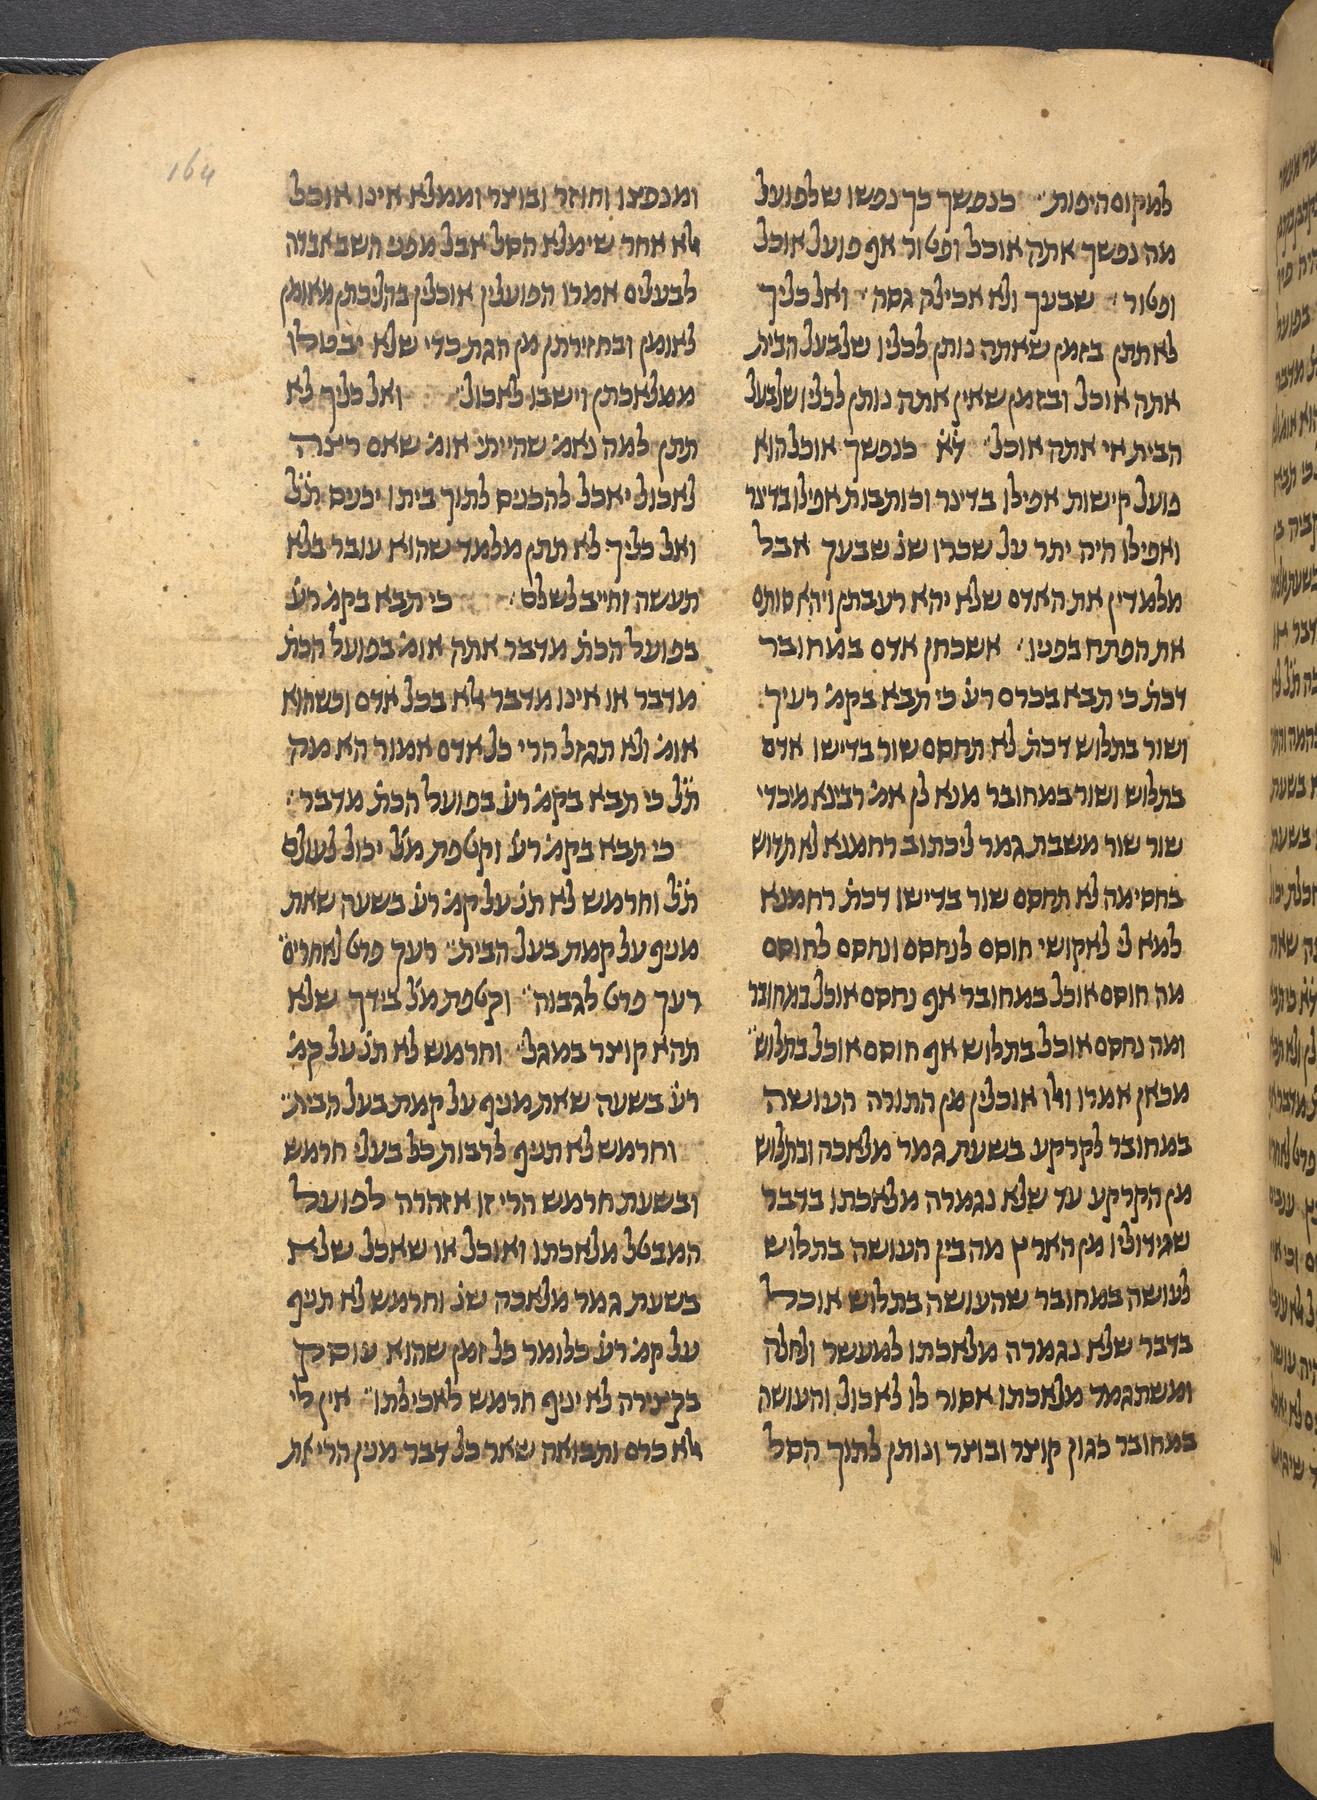 164
למקום היפות׃ כנפשך כך נפשו שלפועל
מה נפשך אתה אוכל ופטור אף פועל אוכל
ופטור׃ שבעך ולא אכילה גסה׃ ואל כליך
לא תתן בזמן שאתה נותן לכליו שלבעל הבית
אתה אוכל ובזמן שאין אתה נותן לכליו שלבעל
הבית אי אתה אוכל׃ לא כנפשך אוכל הוא
פועל קישות אפילו בדינר וכותבות אפילו בדינר
ואפילו היה יתר על שכרו שנ׳ שבעך אבל
מלמדין את האדם שלא יהא רעבתן ויהא סותם
את הפתח בפניו׃ אשכחן אדם במחובר
דכת׳ כי תבא בכרם רע׳ כי תבא בקמ׳ רעיך׃
ושור בתלוש דכת׳ לא תחסם שור בדישו אדם
בתלוש ושור במחובר מנא לן אמ׳ רבינא מיכדי
שור שור משבת גמר ליכתוב רחמנא לא תדוש
בחסימה לא תחסם שור בדישו דכת׳ רחמנא
למא לי לאקושי חוסם לנחסם ונחסם לחוסם
מה חוסם אוכל במחובר אף נחסם אוכל במחובר
ומה נחסם אוכל בתלוש אף חוסם אוכל בתלוש׃
מכאן אמרו ואלו אוכלין מן התורה העושה
במחובר לקרקע בשעת גמר מלאכה ובתלוש
מן הקרקע עד שלא נגמרה מלאכתו בדבר
שגידוליו מן הארץ מה בין העושה בתלוש
לעושה במחובר שהעושה בתלוש אוכל
בדבר שלא נגמרה מלאכתו למעשר ולחלה
ומשתגמר מלאכתו אסור לו לאכול והעושה
במחובר כגון קוצר ובוצר ונותן לתוך הסל
ומנפצו וחוזר ובוצר וממלא אינו אוכל
אלא אחר שימלא הסל אבל מפני השב אבדה
לבעלים אמרו הפועלין אוכלין בהליכתן מאומן
לאומן ובחזירתן מן הגת כדי שלא יבטלו
ממלאכתן וישבו לאכול׃ ואל כליך לא
תתן למה נאמ׳ שהייתי אומ׳ שאם רצה
לאכול יאכל להכניס לתוך ביתו יכניס ת״ל
ואל כליך לא תתן מלמד שהוא עובר בלא
תעשה וחייב לשלם׃ כי תבא בקמ׳ רע׳
בפועל הכת׳ מדבר אתה אומ׳ בפועל הכת׳
מדבר או אינו מדבר אלא בכל אדם וכשהוא
אומ׳ ולא תגזל הרי כל אדם אמור הא מה
ת״ל כי תבא בקמ׳ רע׳ בפועל הכת׳ מדבר׃
כי תבא בקמ׳ רע׳ וקטפת מל׳ יכול לעולם
ת״ל וחרמש לא תנ׳ על קמ׳ רע׳ בשעה שאת
מניף על קמת בעל הבית׃ רעך פרט לאחרים׃
רעך פרט לגבוה׃ וקטפת מל׳ בידך שלא
תהא קוצר במגל׃ וחרמש לא תנ׳ על קמ׳
רע׳ בשעה שאת מניף על קמת בעל הבית׃
וחרמש לא תניף לרבות כל בעלי חרמש
ובשעת חרמש הרי זו אזהרה לפועל
המבטל מלאכתו ואוכל או שאכל שלא
בשעת גמר מלאכה שנ׳ וחרמש לא תניף
על קמ׳ רע׳ כלומר כל זמן שהוא עוסק
בקצירה לא יניף חרמש לאכילתו׃ אין לי
אלא כרם ותבואה שאר כל דבר מנין הרי את